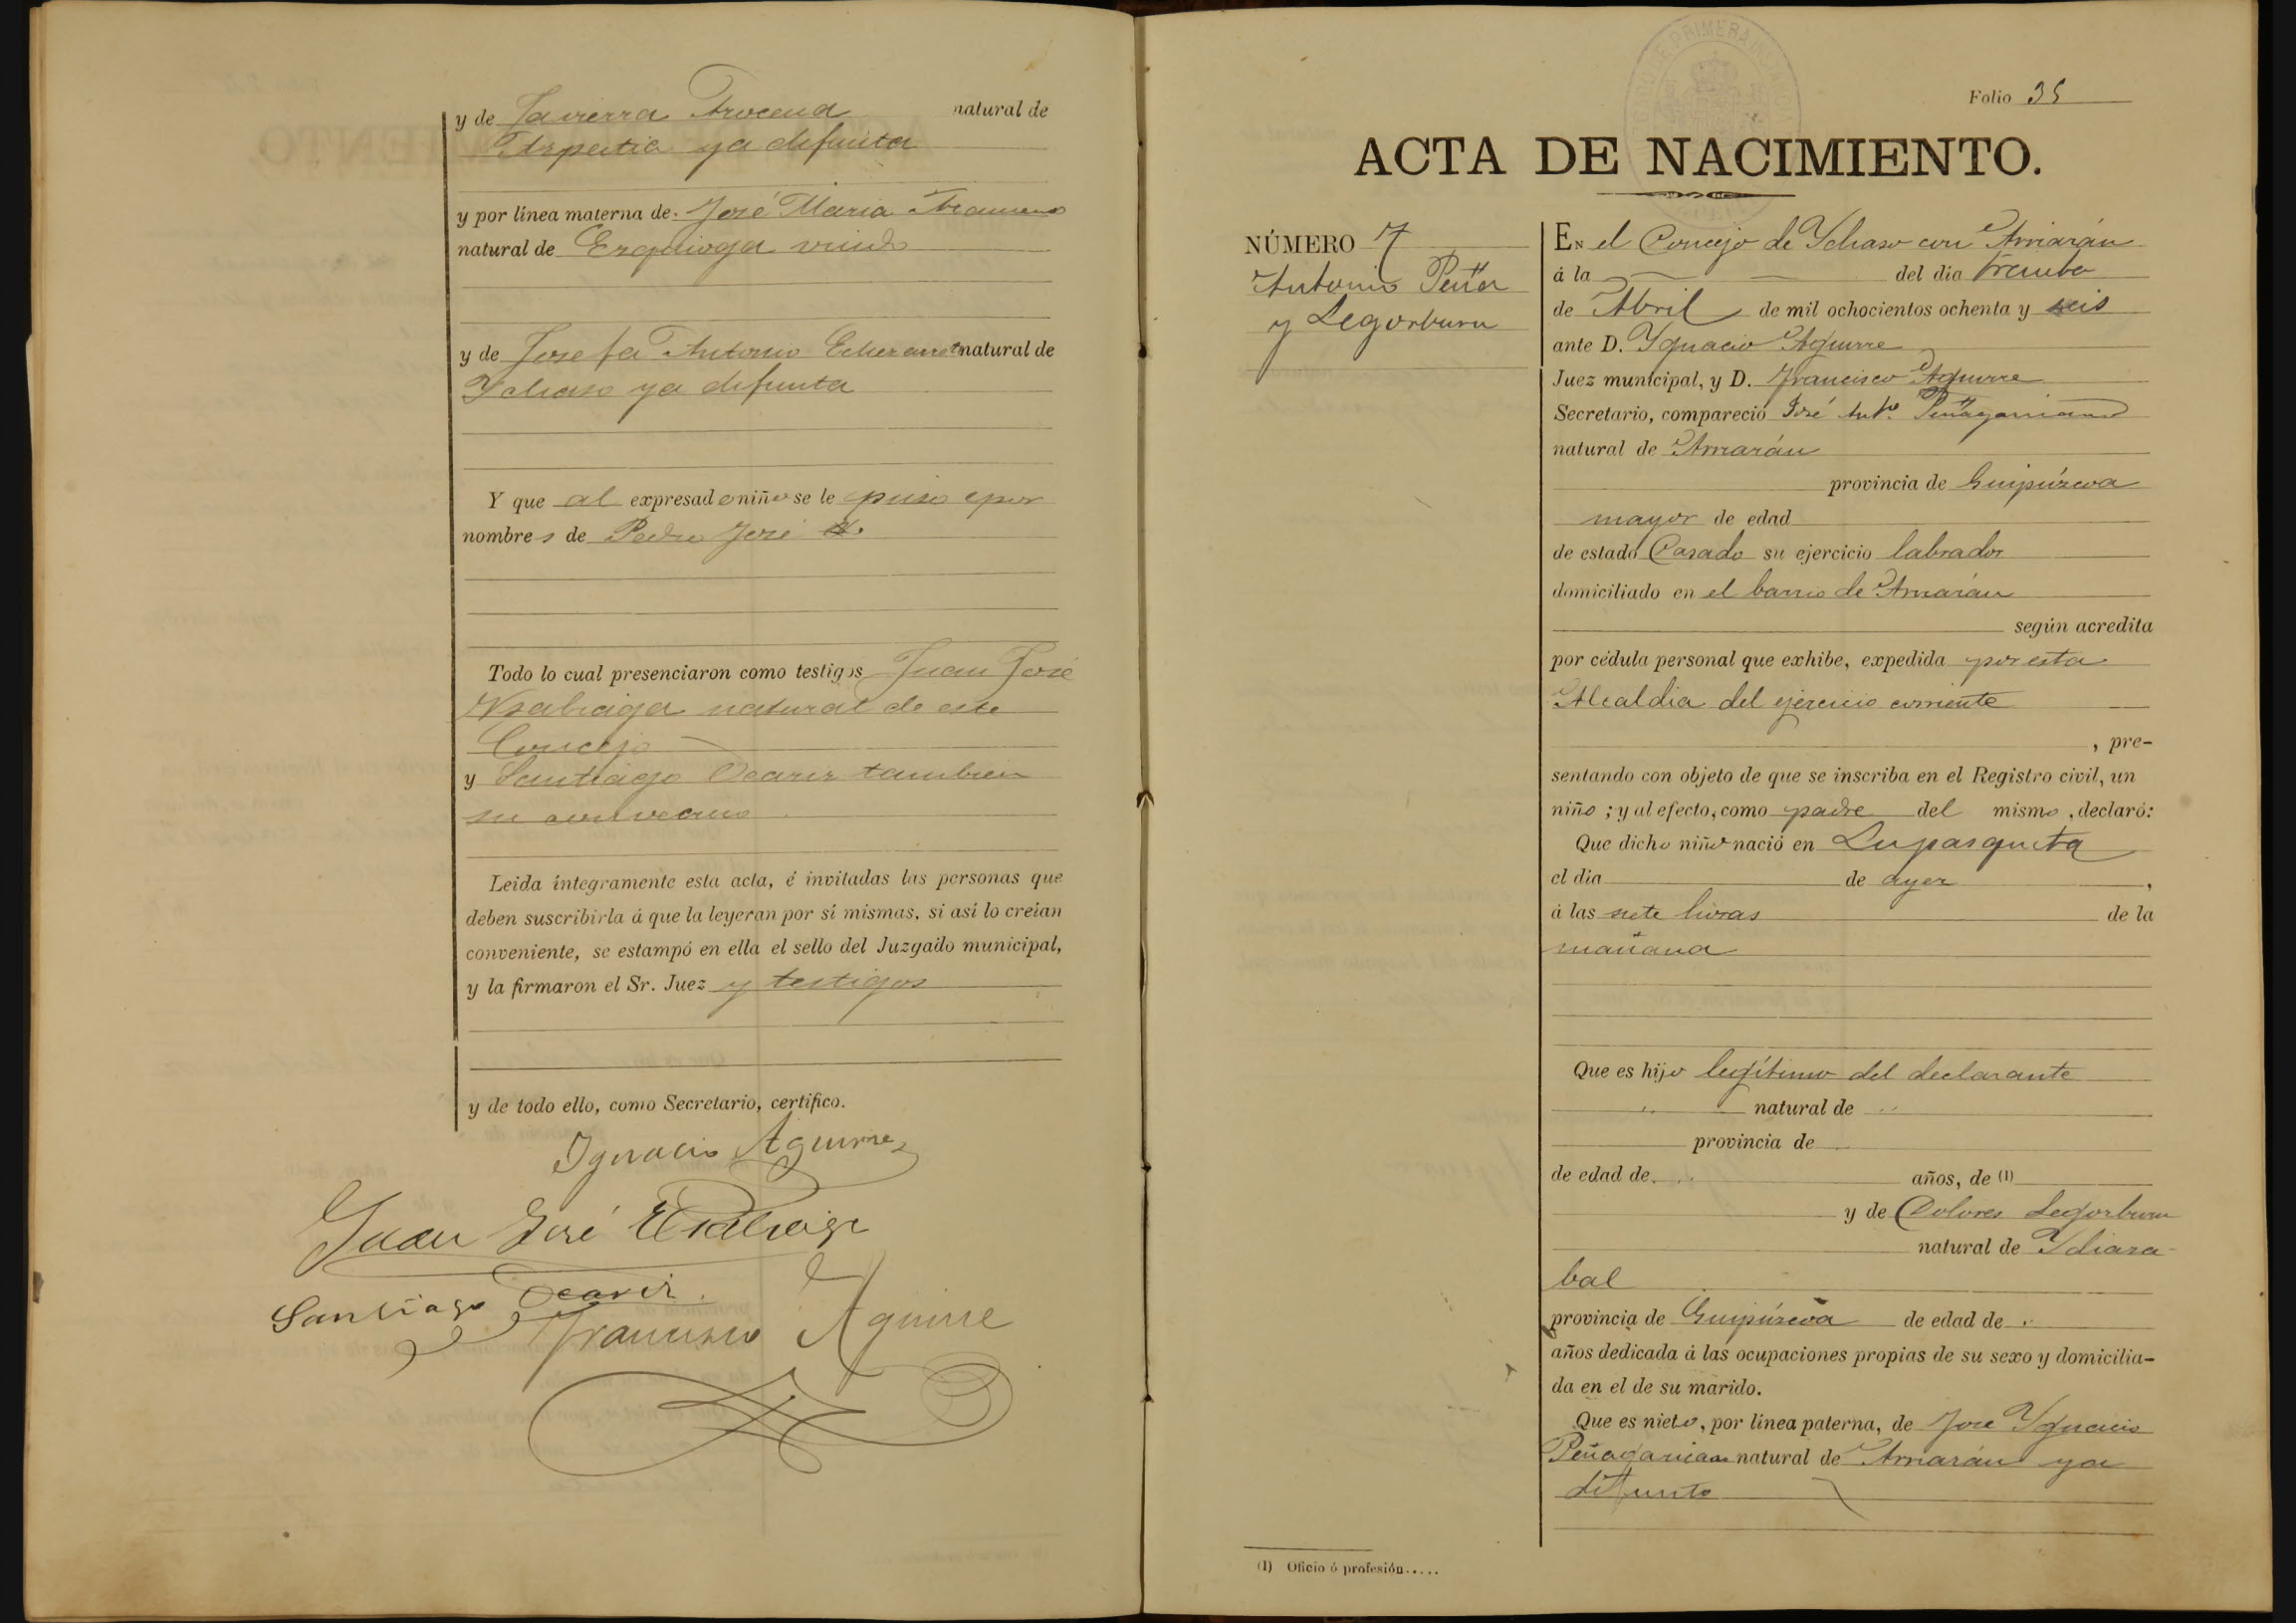 y de Javierra Arocena natural de
Azpeitia ya difunta
y por línea materna de José Maria
natural de Ezquioga viudo
y de Josefa Antonia natural de
Ychaso ya difunta
Y que al expresado niño se le puso por
nombres de Pedro José
Todo lo cual presenciaron como testigos Juan José
natural de este
Concejo
y Santiago Ocariz tambien
su convecino
Leida íntegramente esta acta, é invitadas las personas que
deben suscribirla á que la leyeran por sí mismas, si así lo creían
conveniente, se estampó en ella el sello del Juzgado municipal,
y la firmaron el Sr. Juez y testigos
y de todo ello, como Secretario, certifico.
Ignacio Aguirre
Juan José
Santiago Ocariz.
Francisco Aguirre
Folio 35
ACTA DE NACIMIENTO.
NÚMERO 7
Antonio Peña
y Legorburu
EN el Concejo de Ychaso con Arriarán
á la del dia treinta
de Abril de mil ochocientos ochenta y seis
ante D. Ygnacio Aguirre
Juez municipal, y D. Francisco Aguirre
Secretario, compareció José Anto. Peñagaricano
natural de Arriarán
provincia de Guipúzcoa
mayor de edad
de estado Casado su ejercicio labrador
domiciliado en el barrio de Arriarán
según acredita
por cédula personal que exhibe, expedida por esta
Alcaldia del ejercicio corriente
, pre-
sentando con objeto de que se inscriba en el Registro civil, un
niño ; y al efecto, como padre del mismo , declaró:
Que dicho niño nació en Lupasqueta
el dia de ayer ,
á las siete horas de la
mañana
Que es hijo legítimo del declarante
natural de
provincia de
de edad de años, de (1)
y de Dolores Legorburu
natural de Ydiaza-
bal
provincia de Guipúzcoa de edad de
años dedicada á las ocupaciones propias de su sexo y domicilia-
da en el de su marido.
Que es nieto, por línea paterna, de José Ygnacio
Peñagaricano natural de Arriarán ya
difunto
(1) Oficio ó profesión.....